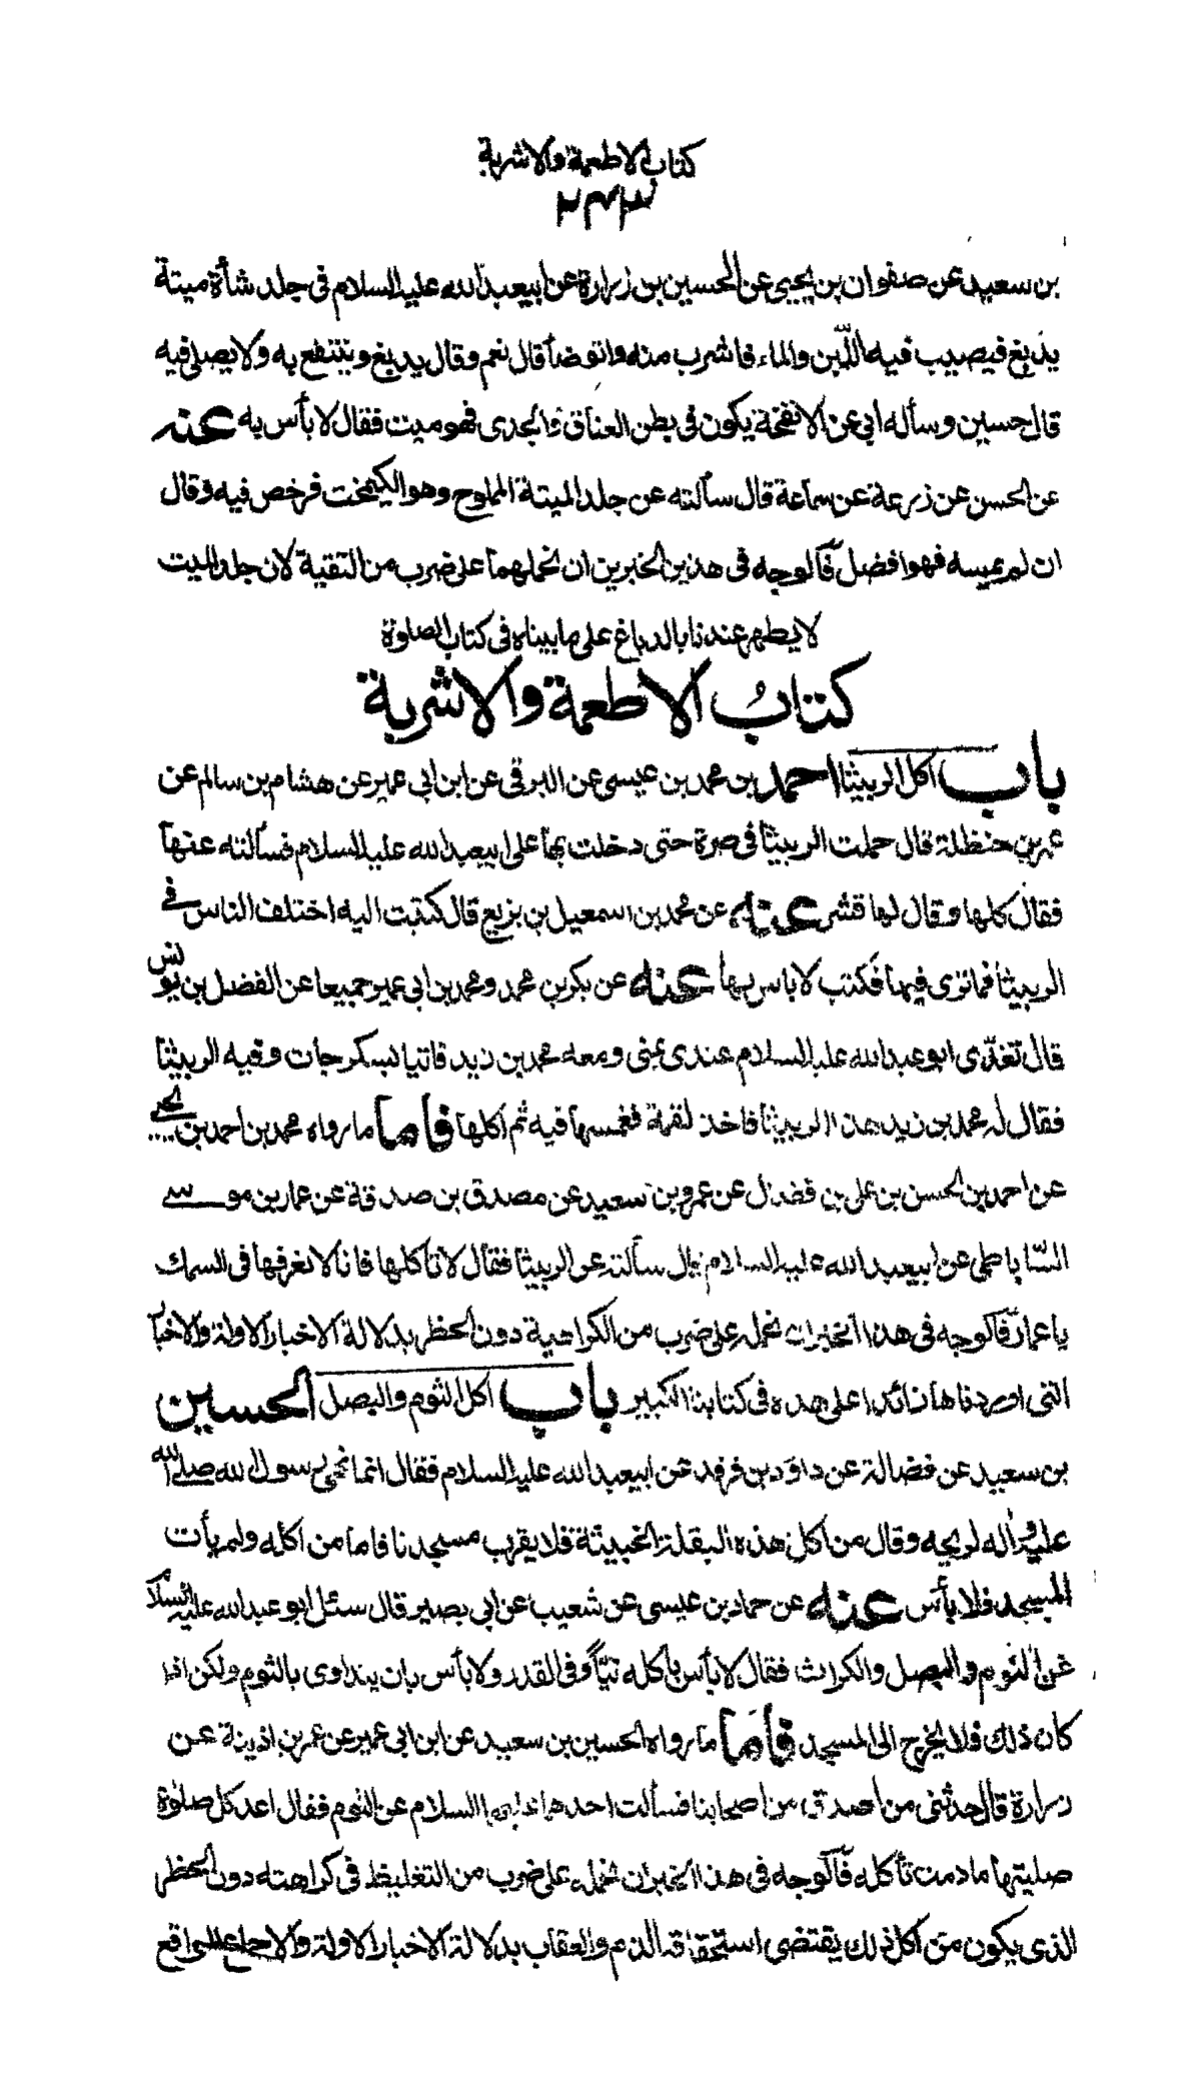 كتاب الاطعمة والاشربة
٢٤٣
بن سعيد عن صفوان بن يحيى عن الحسين بن زرارة عن ابيعبد الله عليه السلام فى جلد شأة ميتة
يدبغ فيصيب فيه اللّبن والماء فاشرب منه واتوضأ قال نعم وقال يدبغ وينتفع به ولا يصلى فيه
قال حسين وسأله أبى عن الانفخة يكون فى بطن العناق والجدى فهو ميت فقال لا بأس به عنه
عن الحسن عن زرعة عن سماعة قال سألته عن جلد الميتة المملوح وهو الكيمخت فرخص فيه وقال
ان لم يمسه فهو افضل فالوجه فى هذين الخبرين ان نحملهما على ضرب من التقية لان جلد الميت
لا يطهر عندنا بالدباغ على ما بيناه فى كتاب الصلوة
كتابُ الاطعمة والاشربة
باب اكل الربيثا احمد بن محمد بن عيسى عن البرقى عن ابن ابى عمير عن هشام بن سالم عن
عمر بن حنظلة قال حملت الربيثا فى صرة حتى دخلت بها على ابيعبد الله عليه السلام فسألته عنها
فقال كلها وقال لها قشر عنه عن محمد بن اسمعيل بن بزيع قال كتبت اليه اختلف الناس فى
الربيثا فما ترى فيها فكتب لا باس بها عنه عن بكر بن محمد ومحمد بن ابى عمير جميعا عن الفضل بن يونس
قال تغدّى ابو عبد الله عليه السلام عندى بمنى ومعه محمد بن زيد فاتيا بسكرجات وفيه الربيثا
فقال له محمد بن زيد هذا الربيثا فاخذ لقمة فغمسها فيه ثم اكلها فاما ما رواه محمد بن احمد بن يحيى
عن احمد بن الحسن بن على بن فضال عن عمرو بن سعيد عن مصدق بن صدقة عن عمار بن موسے
السّاباطى عن ابيعبد الله عليه السلام قال سألته عن الربيثا فقال لا تأكلها فانا لا نعرفها فى السمك
يا عمار فالوجه فى هذا الخبر ان نحمله على ضرب من الكراهية دون الحظر بدلالة الاخبار الاولة والاخبار
التى اوردناها زائدا على هذه فى كتابنا الكبير باب اكل الثوم والبصل الحسين
بن سعيد عن فضالة عن داود بن فرقد عن ابيعبد الله عليه السلام فقال انما نهى رسول الله صلى الله
عليه وآله لريحه وقال من اكل هذه البقلة الخبيثة فلا يقرب مسجدنا فاما من اكله ولم يأت
المسجد فلا بأس عنه عن حماد بن عيسى عن شعيب عن ابى بصير قال سئل ابو عبد الله عليه السلام
عن الثوم والبصل والكراث فقال لا بأس باكله نيّا وفى القدر ولا بأس بان يتداوى بالثوم ولكن اذا
كان ذلك فلا يخرج الى المسجد فاما ما رواه الحسين بن سعيد عن ابن ابى عمير عن عمر بن اذينة عن
زرارة قال حدثنى من اصدق من اصحابنا فسألت احدهما عليهما السلام عن الثوم فقال اعد كل صلوة
صليتها ما دمت تأكله فالوجه فى هذا الخبر ان نحمله على ضرب من التغليظ فى كراهته دون الحظر
الذى يكون من اكل ذلك يقتضى استحقاقه الذم والعقاب بدلالة الاخبار الاولة والاجماع الواقع